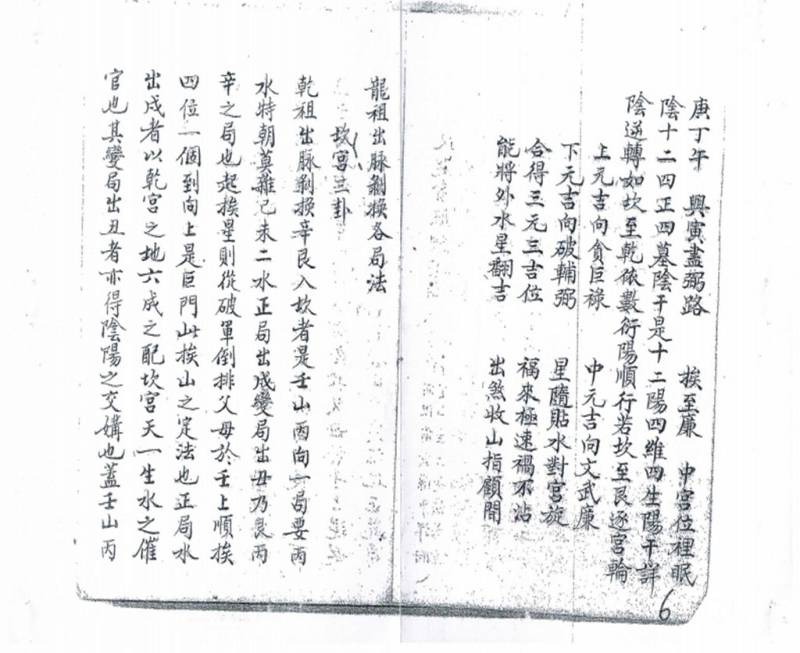 庚丁午 興寅盡弼路 挨至廉 中宮位裡眠
陰十二四正四墓陰干是十二陽四維四生陽干詳
陰逆轉如坎至乾依數衍陽順行若坎至艮逐宮輪
上元吉向貪巨祿 中元吉向文武廉
下元吉向破輔弼 星隨貼水對宮旋
合得三元三吉位 福來極速禍不沾
能將外水星翻吉 出煞收山指顧間
6
龍祖出脉剝換各局法
坎宮三卦
乾祖出脉剝換辛艮入坎者是壬山丙向一局要丙
水特朝莫雜己未二水正局出戌變局出丑乃艮丙
辛之局也起挨星則從破軍倒排父母於壬上順挨
四位一個到向上是巨門此挨山之定法也正局水
出戌者以乾宮之地六成之配坎宮天一生水之催
官也其變局出丑者亦得陰陽之交媾也蓋壬山丙